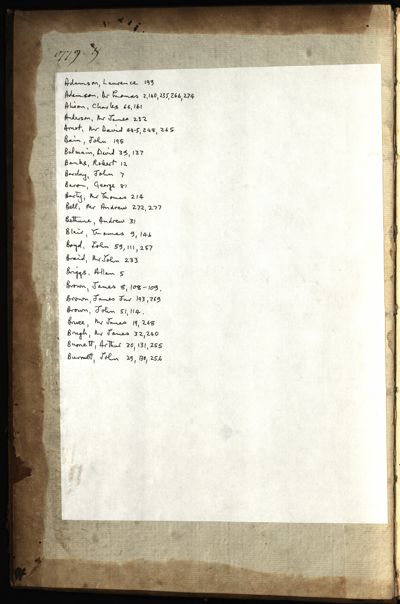 1779
Adamson, Lawrence 193
Adamson, Mr Thomas 2,160,235,266,274
Alison, Charles 66,161
Anderson, Mr James 232
Arnot, Mr David 64-5,248,265
Bain, John 195
Balmain, David 35,137
Banks, Robert 12
Barclay, John 7
Baron, George 81
Barty, Mr Thomas 214
Bell, Mr Andrew 272,277
Bethune, Andrew 31
Blair, Thomas 9,146
Boyd, John 59,111,257
Braid, Mr John 233
Briggs, Allan 5
Brown, James 8,108-109.
Brown, James Jnr 193,269
Brown, John 51,114.
Bruce, Mr James 19,268
Brugh, Mr James 32,260
Burnett, Arthur 30,131,255
Burnett, John 29,130,256